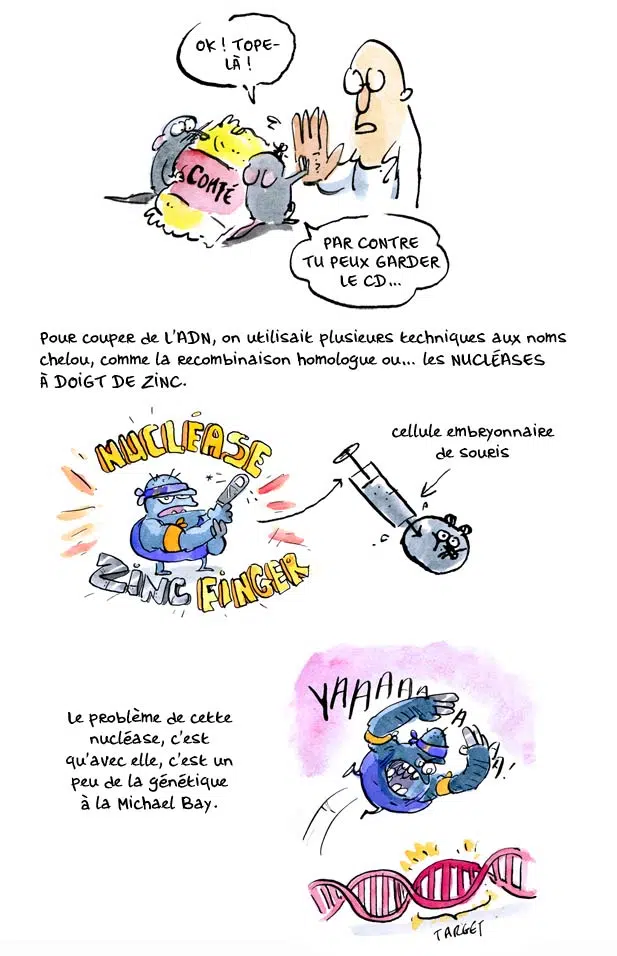 OK ! TOPE-
LÀ !
COMTÉ
PAR CONTRE
TU PEUX GARDER
LE CD...
Pour couper de L'ADN, on utilisait plusieurs techniques aux noms
chelou, comme la recombinaison homologue ou... les NUCLÉASES
À DOIGT DE ZINC.
NUCLÉASE
ZINC FINGER
cellule embryonnaire
de souris
Le problème de cette
nucléase, c'est
qu'avec elle, c'est un
peu de la génétique
à la Michael Bay.
YAAAAAAA!
TARGET